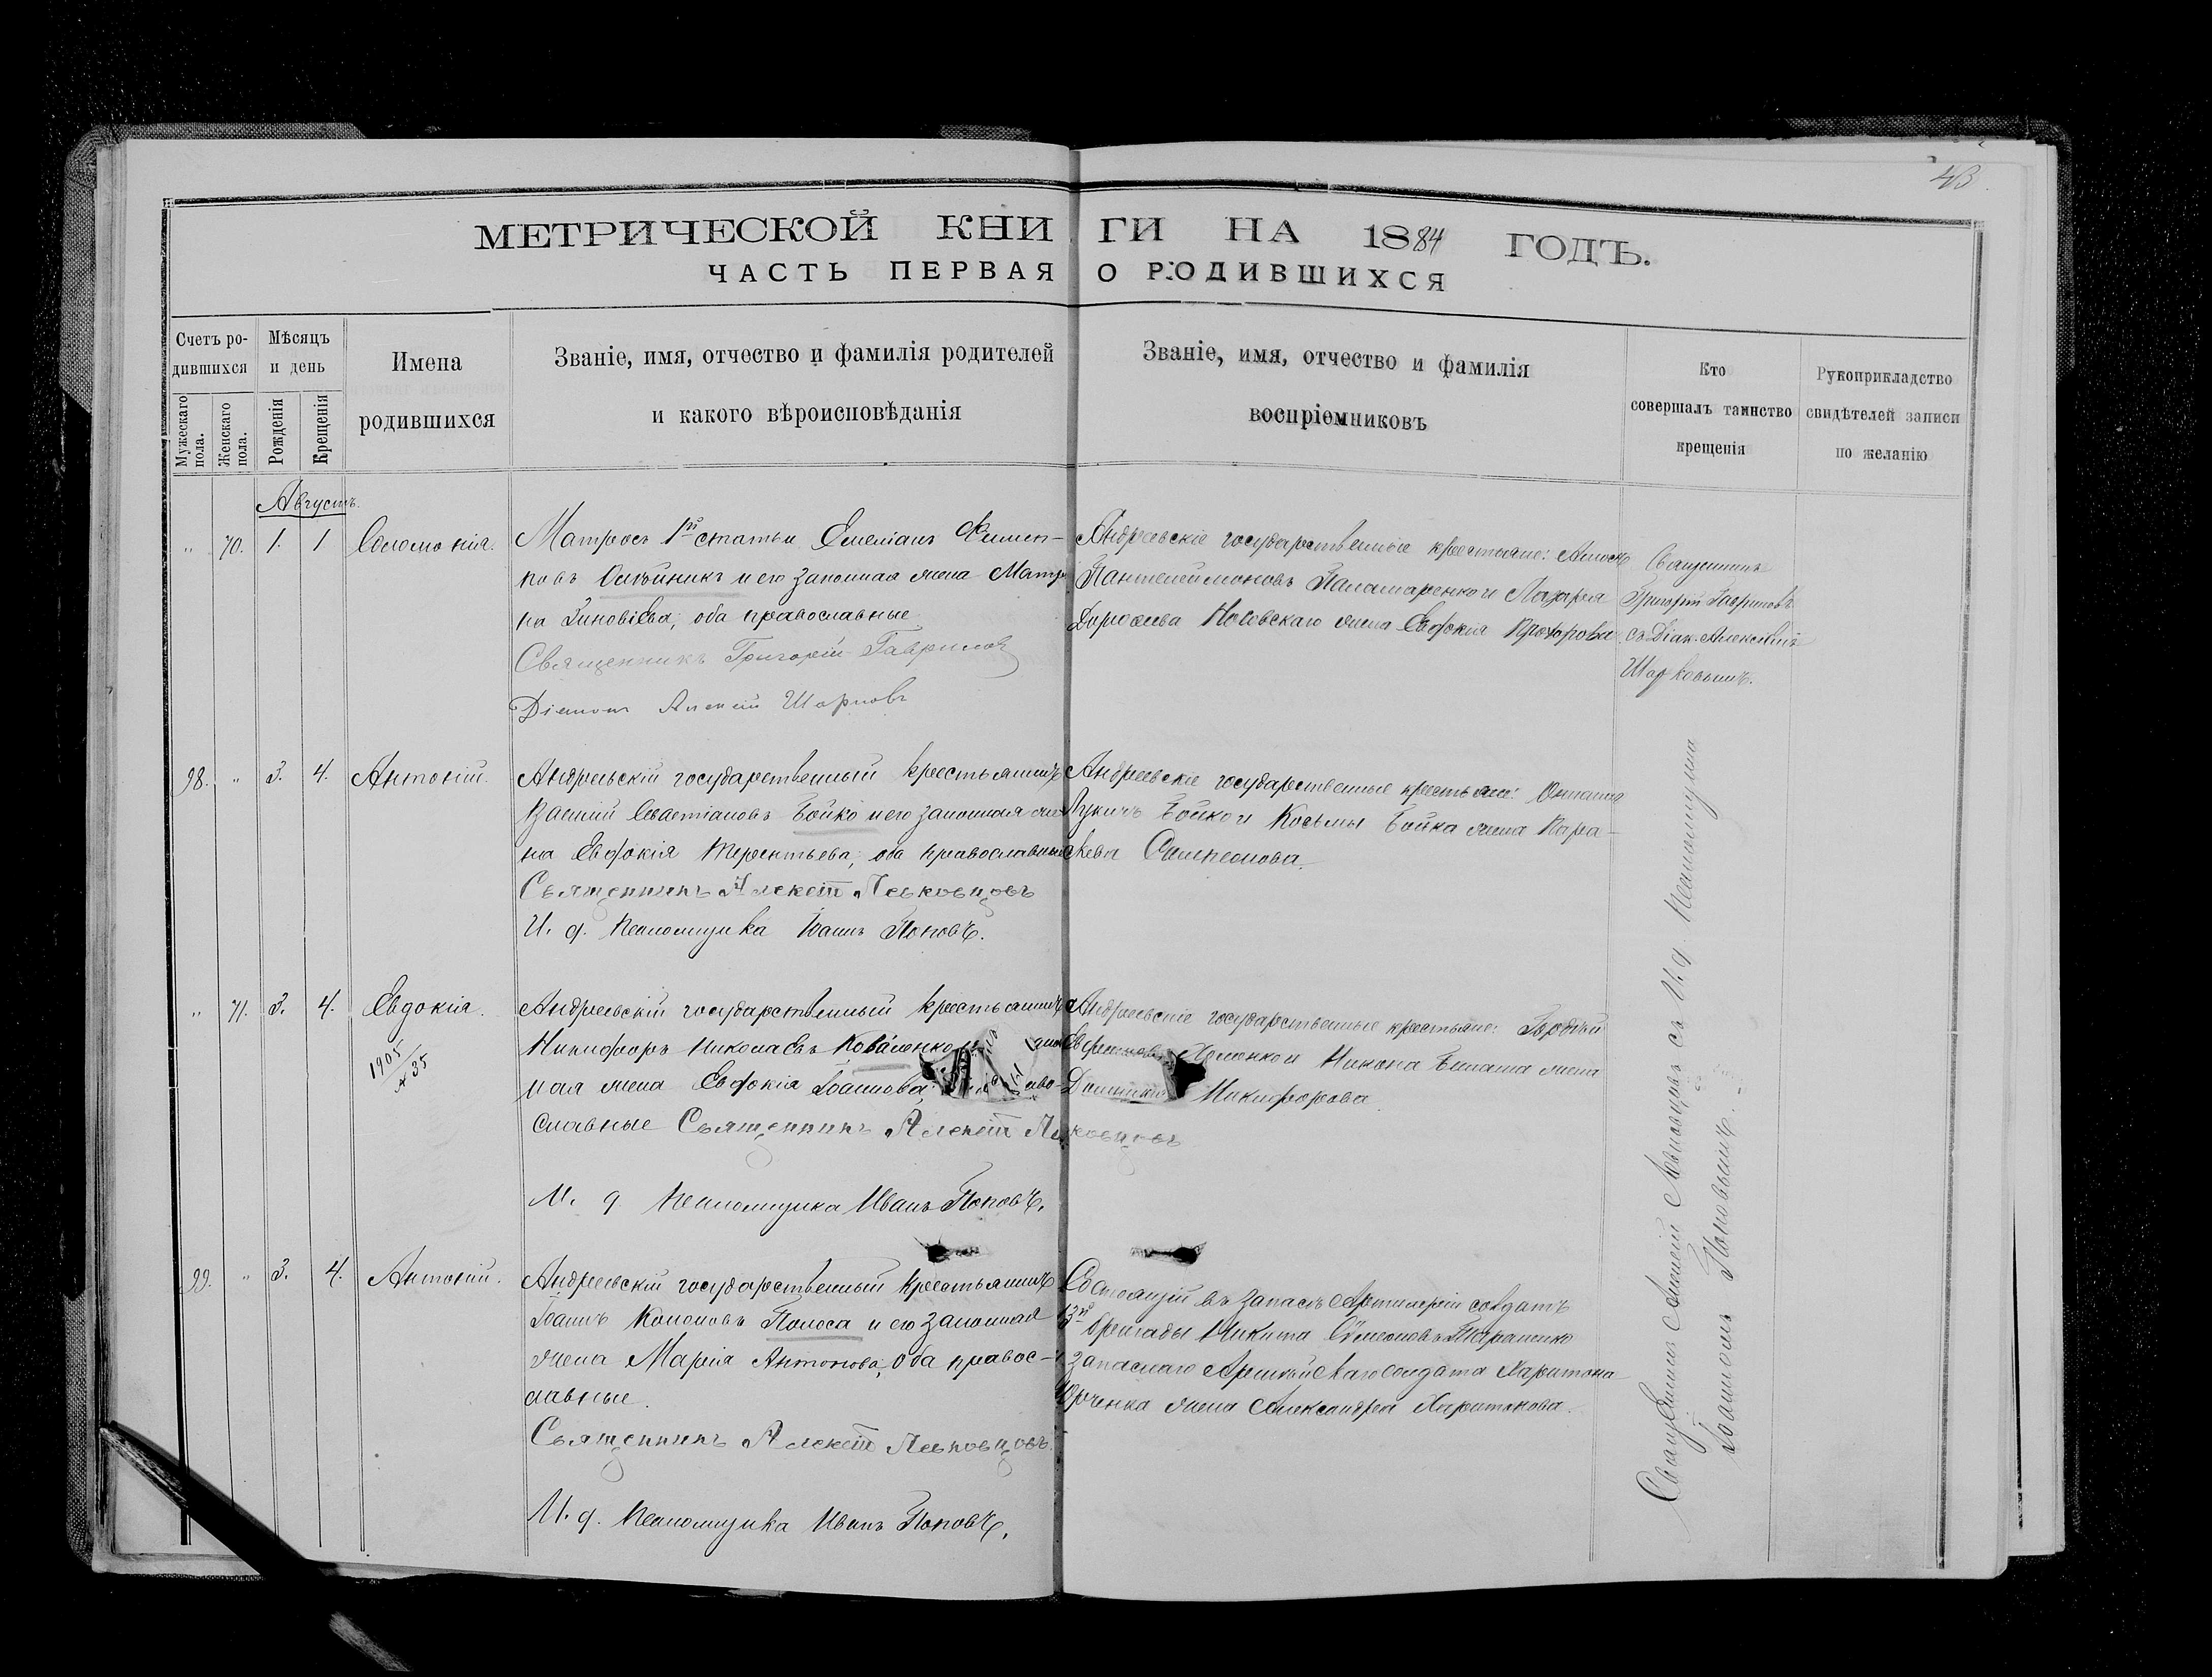 43
МЕТРИЧЕСКОЙ КНИГИ НА 1884 ГОДЪ.
ЧАСТЬ ПЕРВАЯ О РОДИВШИХСЯ
Счетъ родившихся
Мужескаго пола.
Женскаго пола.
Мѣсяцъ и день
Рожденія
Крещенія
Имена
родившихся
Званіе, имя, отчество и фамилія родителей
и какого вѣроисповѣданія
Званіе, имя, отчество и фамилія
воспріемниковъ
Кто
совершалъ таинство
крещенія
Рукоприкладство
свидѣтелей записи
по желанію
Августъ.
" 70. 1. 1. Соломонія.
Матросъ 1й статьи Емеліанъ
Олейникъ и его законная жена Матро
на Зиновіева, оба православные.
Священникъ Григорій Гавриловъ
Діаконъ Алексій Шарковъ
Андреевскіе государственные крестьяне:
Пантелеймоновъ Паламаренко и Лазаря
Дорофеева Носовскаго жена Евдокія Прохорова
Священникъ
Григорій Гавриловъ
съ Діак. Алексіемъ
Шарковымъ.
98. " 3. 4. Антоній.
Андреевскій государственный крестьянинъ
Василій Севастіановъ Бойко и его законная же
на Евдокія Терентьева, оба православные
Священникъ Алексій Левковцовъ
И. д. псаломщика Іоаннъ Поповъ.
Андреевскіе государственные крестьяне:
Лукичъ Бойко и Косьмы Бойка жена Параскева
" 71. 3. 4. Евдокія.
1905
35
Андреевскій государственный крестьянинъ
Никифоръ Николаевъ Коваленко
ная жена Евдокія Іоаннова,
славные Священникъ Алексій Левковцовъ
И. д. псаломщика Иванъ Поповъ.
Андреевскіе государственные крестьяне: Гордѣй
и Никона жена
Никифорова
99. " 3. 4. Антоній.
Андреевскій государственный крестьянинъ
Іоаннъ Кононовъ Полоса и его законная
жена Марія Антонова, оба православные.
Священникъ Алексій Левковцовъ.
И. д. псаломщика Иванъ Поповъ.
Состоящій въ запасѣ Артиллеріи солдатъ
13й бригады Никита Симеоновъ Тараненко
и запаснаго Армейскаго солдата Харитона
Юрченка жена Александра Харитонова.
Священникъ Алексій Левковцовъ съ И. д. псаломщика
Іоанномъ Поповымъ.